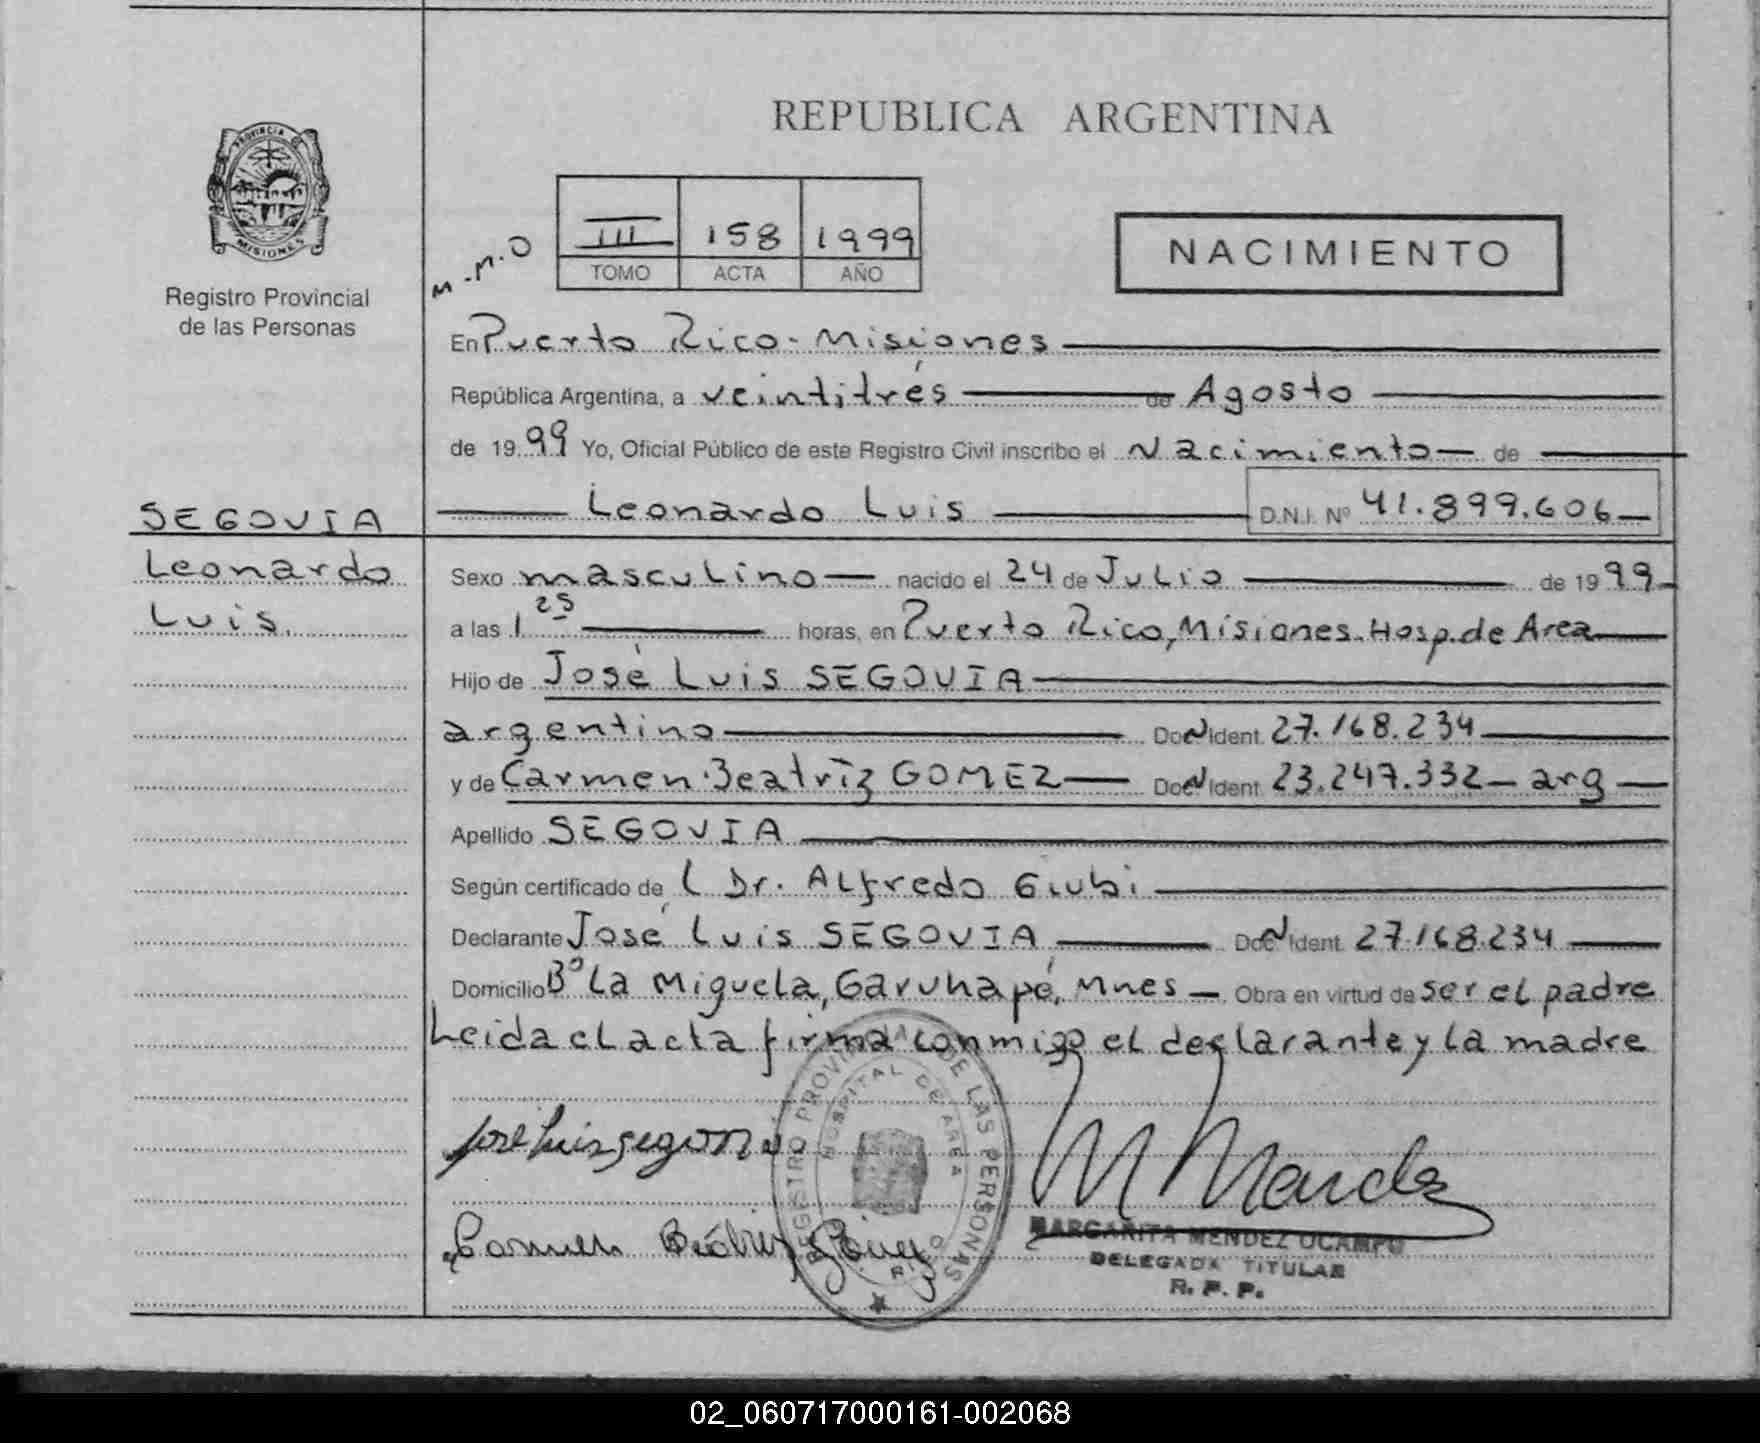 REPUBLICA ARGENTINA
PROVINCIA DE
MISIONES
Registro Provincial
de las Personas
M.M.O
III 158 1999
TOMO ACTA AÑO
NACIMIENTO
En Puerto Rico - Misiones
República Argentina, a veintitrés de Agosto
de 1999 Yo, Oficial Público de este Registro Civil inscribo el Nacimiento de
SEGOVIA
Leonardo
Luis.
Leonardo Luis D.N.I. Nº 41.899.606
Sexo masculino nacido el 24 de Julio de 1999
a las 1 25 horas, en Puerto Rico, Misiones. Hosp. de Area
Hijo de José Luis SEGOVIA
argentino Doc. Ident. 27.168.234
y de Carmen Beatriz GOMEZ Doc. Ident. 23.247.332 - arg
Apellido SEGOVIA
Según certificado de l Dr. Alfredo Giubi
Declarante José Luis SEGOVIA Doc. Ident. 27.168.234
Domicilio Bº La Miguela, Garuhapé, Mnes - Obra en virtud de ser el padre
Leida el acta firma conmigo el declarante y la madre
José Luis Segovia
REGISTRO PROVINCIAL DE LAS PERSONAS
HOSPITAL DE AREA
M Mendez
Carmen Beatriz Gómez
MARGARITA MENDEZ OCAMPO
DELEGADA TITULAR
R. P. P.
02_060717000161-002068